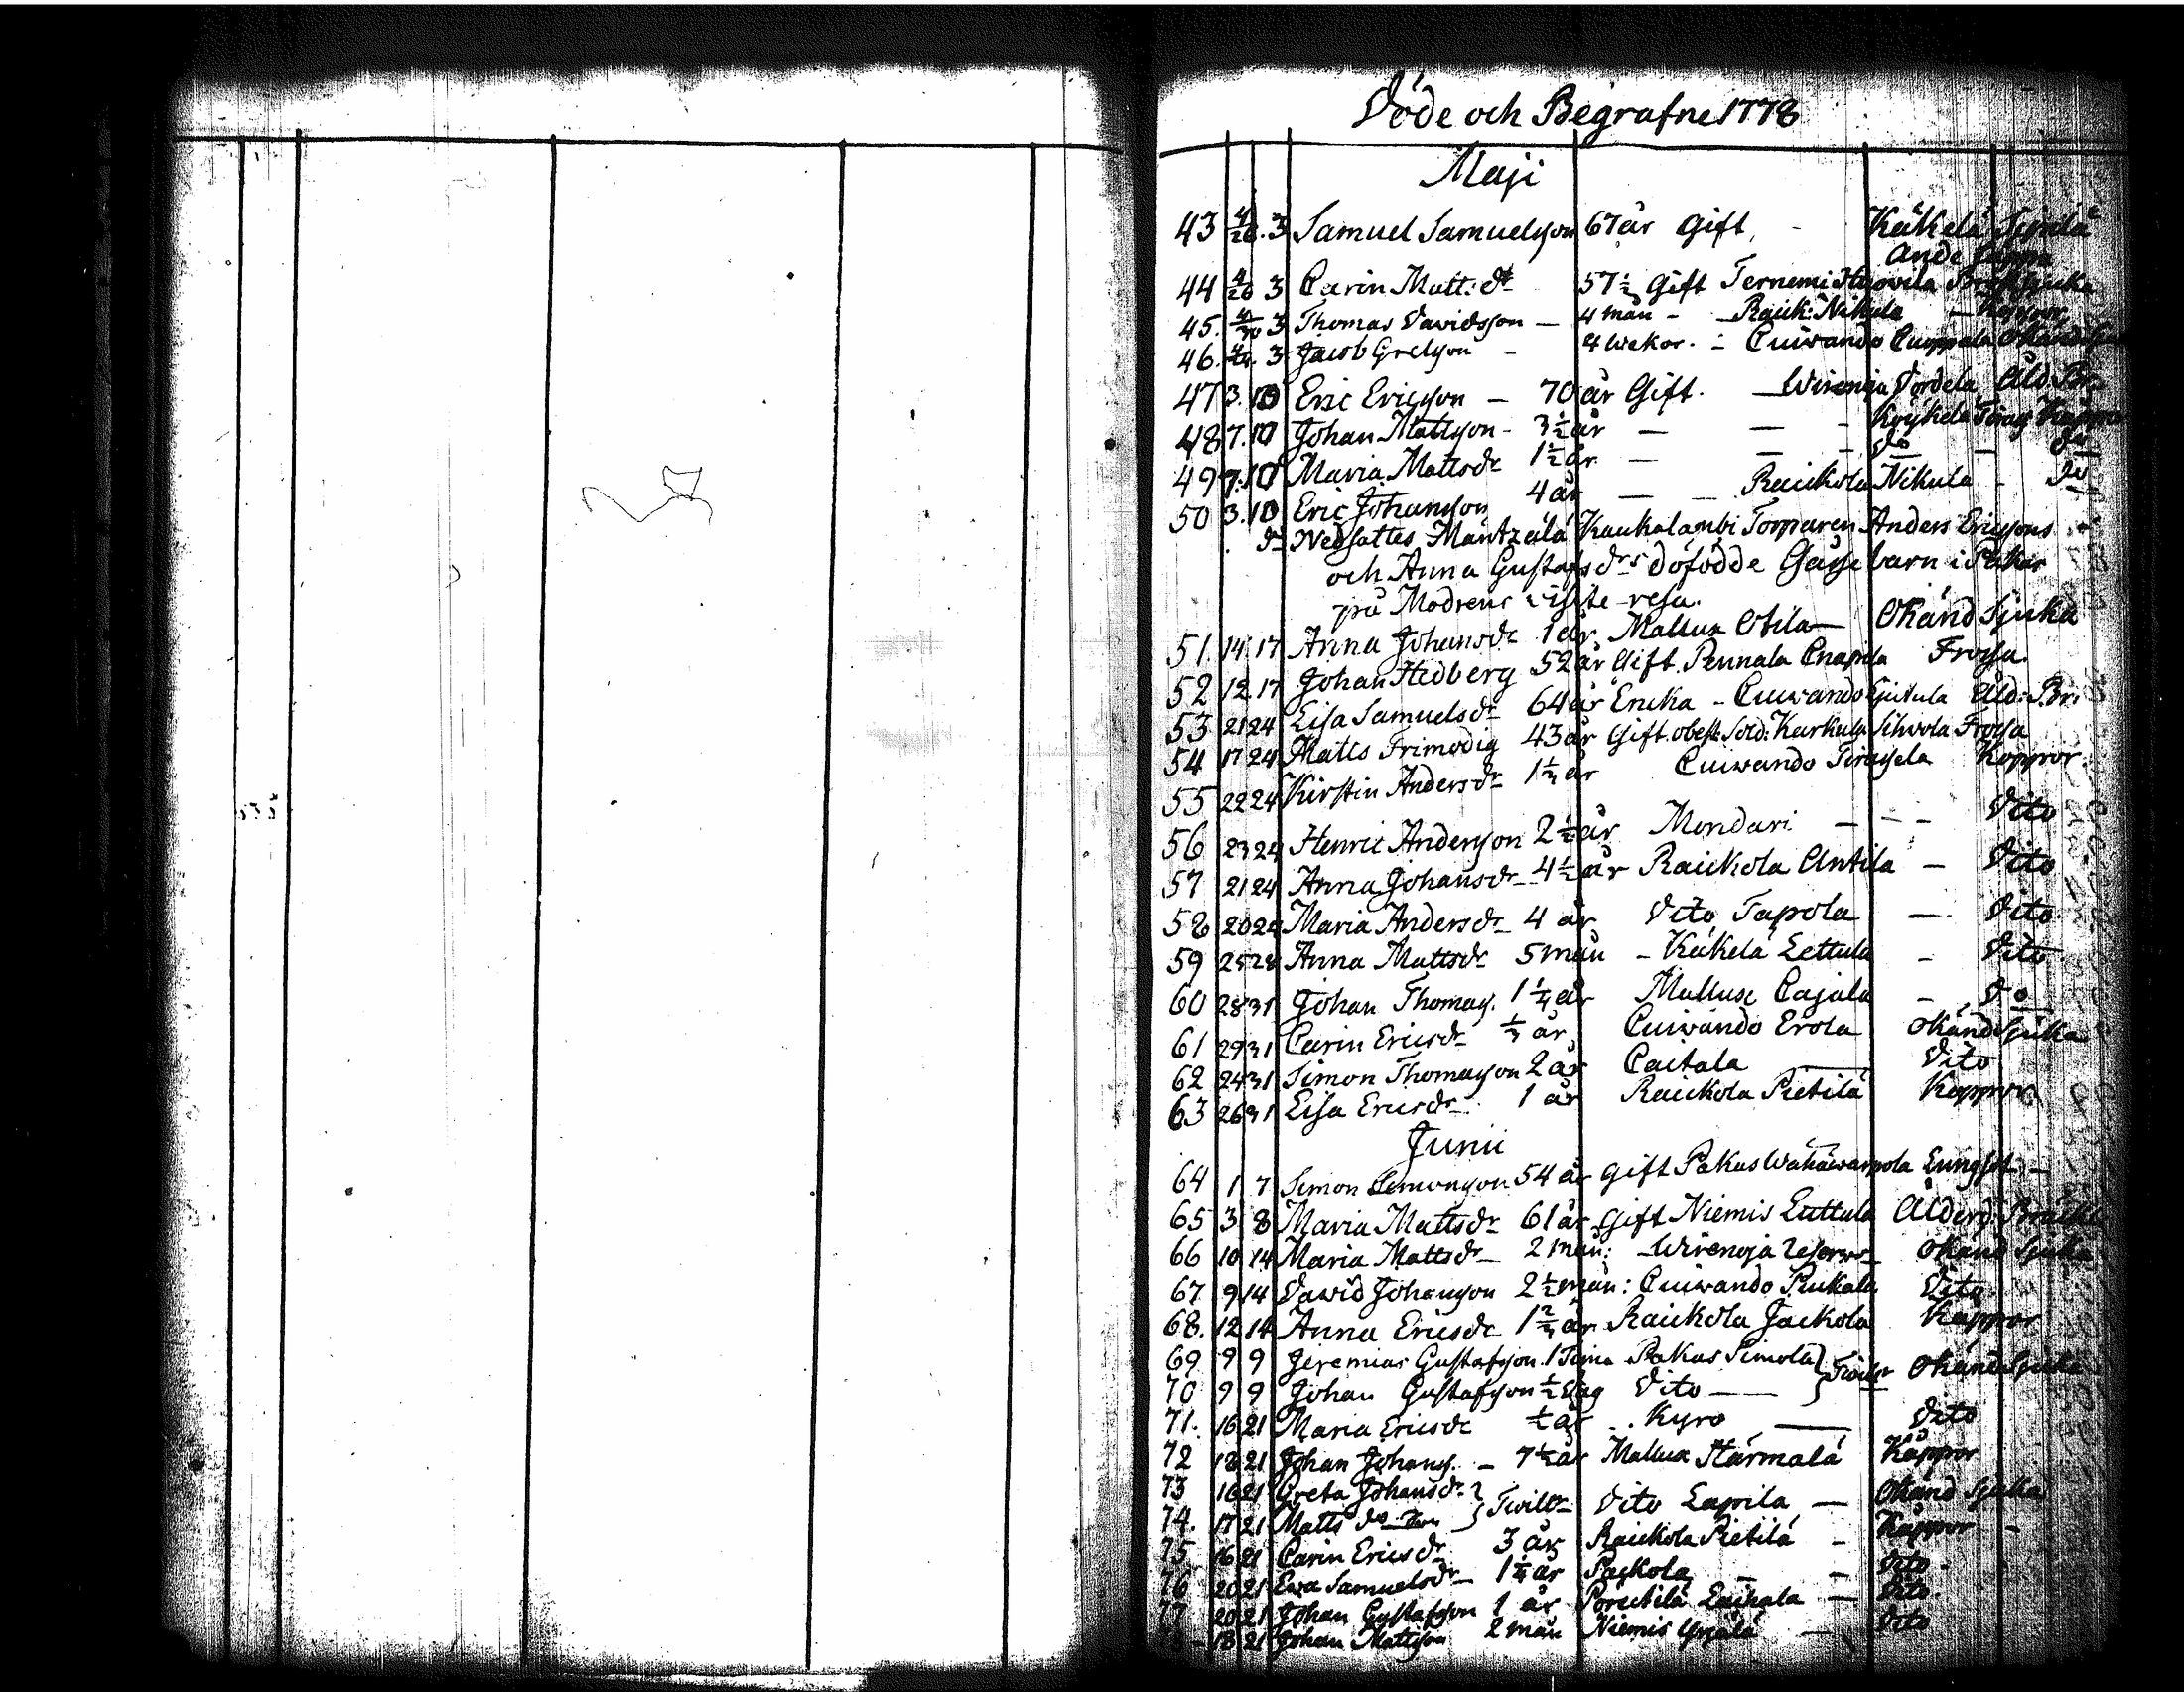 Döde och Begrafne 1778
Maji
43 4/26. 3 Samuel Samuelsson 67 år Gift, - Käkelä Sipilä
Ande
44 4/26 3 Carin Matt: dr 57½ Gift Ternemi Huovila Bröstsjuka
45. 4/30 3 Thomas Davidsson - 4 mån - Rauk: Nikula - Koppor
46. 3 Jacob Grelsson - 4 wekor. - Cuivando Cuoppala Okänd
47 3. 10 Eric Ericsson - 70 år Gift. - Wirenoja Dördelä Åld: Br.
48 7. 10 Johan Mattsson - 3½ år - - - Köykelä Koppor
49 7. 10 Maria Mattsdr 1½ år - - - Do - Do
50 3. 10 Eric Johansson 4 år - - Raickola Nikula - Do
Do Nedsattes Mäntzälä Kaukalambi Torparen Anders Ericssons
och Anna Gustafs drs döfödde Gåsse barn i Pakas
på Modrens resa.
51. 14. 17 Anna Johansdr 1 år Mallux Otila - Okänd Sjuka
52 12 17 Johan Hedberg 52 år Gift. Pennala Cnapila Frossa
53 21 24 Lisa Samuelsdr 64 år Encka - Cuivando Åld: Br:
54 17 24 Matts Frimodig 43 år Gift. obest: Sold: Karkula Sihvola Frossa
55 22 24 Kirstin Andersdr 1¼ år Cuivando Koppor.
56 23 24 Henric Andersson 2½ år Mondari - - - Dito
57 21 24 Anna Johansdr 4½ år Raickola Antila - Dito
58 20 24 Maria Andersdr 4 år Dito Tapola - Dito
59 25 28 Anna Mattsdr 5 mån - Käkelä Lettula - Dito
60 28 31 Johan Thomas. 1¼ år Mallux Cajala - Do
61 29 31 Carin Ericsdr år Cuivando Erola Okänd Sjuka
62 24 31 Simon Thomasson 2 år Caitala - Dito
63 26 31 Lisa Ericsdr 1 år Raickola Pietilä Koppor.
Junii
64 1 7 Simon Simonsson 54 år Gift Pakas Wähäwarpola Lungsot -
65 3 8 Maria Mattsdr 61 år Gift Niemis Luttula Ålderd: Bräckl
66 10 14 Maria Mattsdr 2 mån: - Wirenoja Okänd Sjuka
67 9 14 David Johansson 2½ mån: Cuivando Pukala Dito.
68. 12 14 Anna Ericsdr år Raickola Jackola Koppor
69 9 9 Jeremias Gustafsson. 1 Tima Pakas Simola } Okänd Sjuka
70 9 9 Johan Gustafsson ½ dag Dito - }
71. 16 21 Maria Ericsdr ½ år Kyrö - Dito
72 18 21 Johan Johans. - 7½ år Mallux Härmälä Koppor
73 16 21 Greta Johansdr } Twill: Dito Lapila - Okänd Sjuka
74. 17 21 Matts do }
75 16 21 Carin Ericsdr 3 år Raickola Pietilä - Koppor -
76 20 21 Ewa Samuelsdr 1¼ år Packola - - Dito -
77 20 21 Johan Gustafsson 1 år Porectilä Laikala - Dito.
18 21 Johan Mattsson 2 mån Niemis - Dito